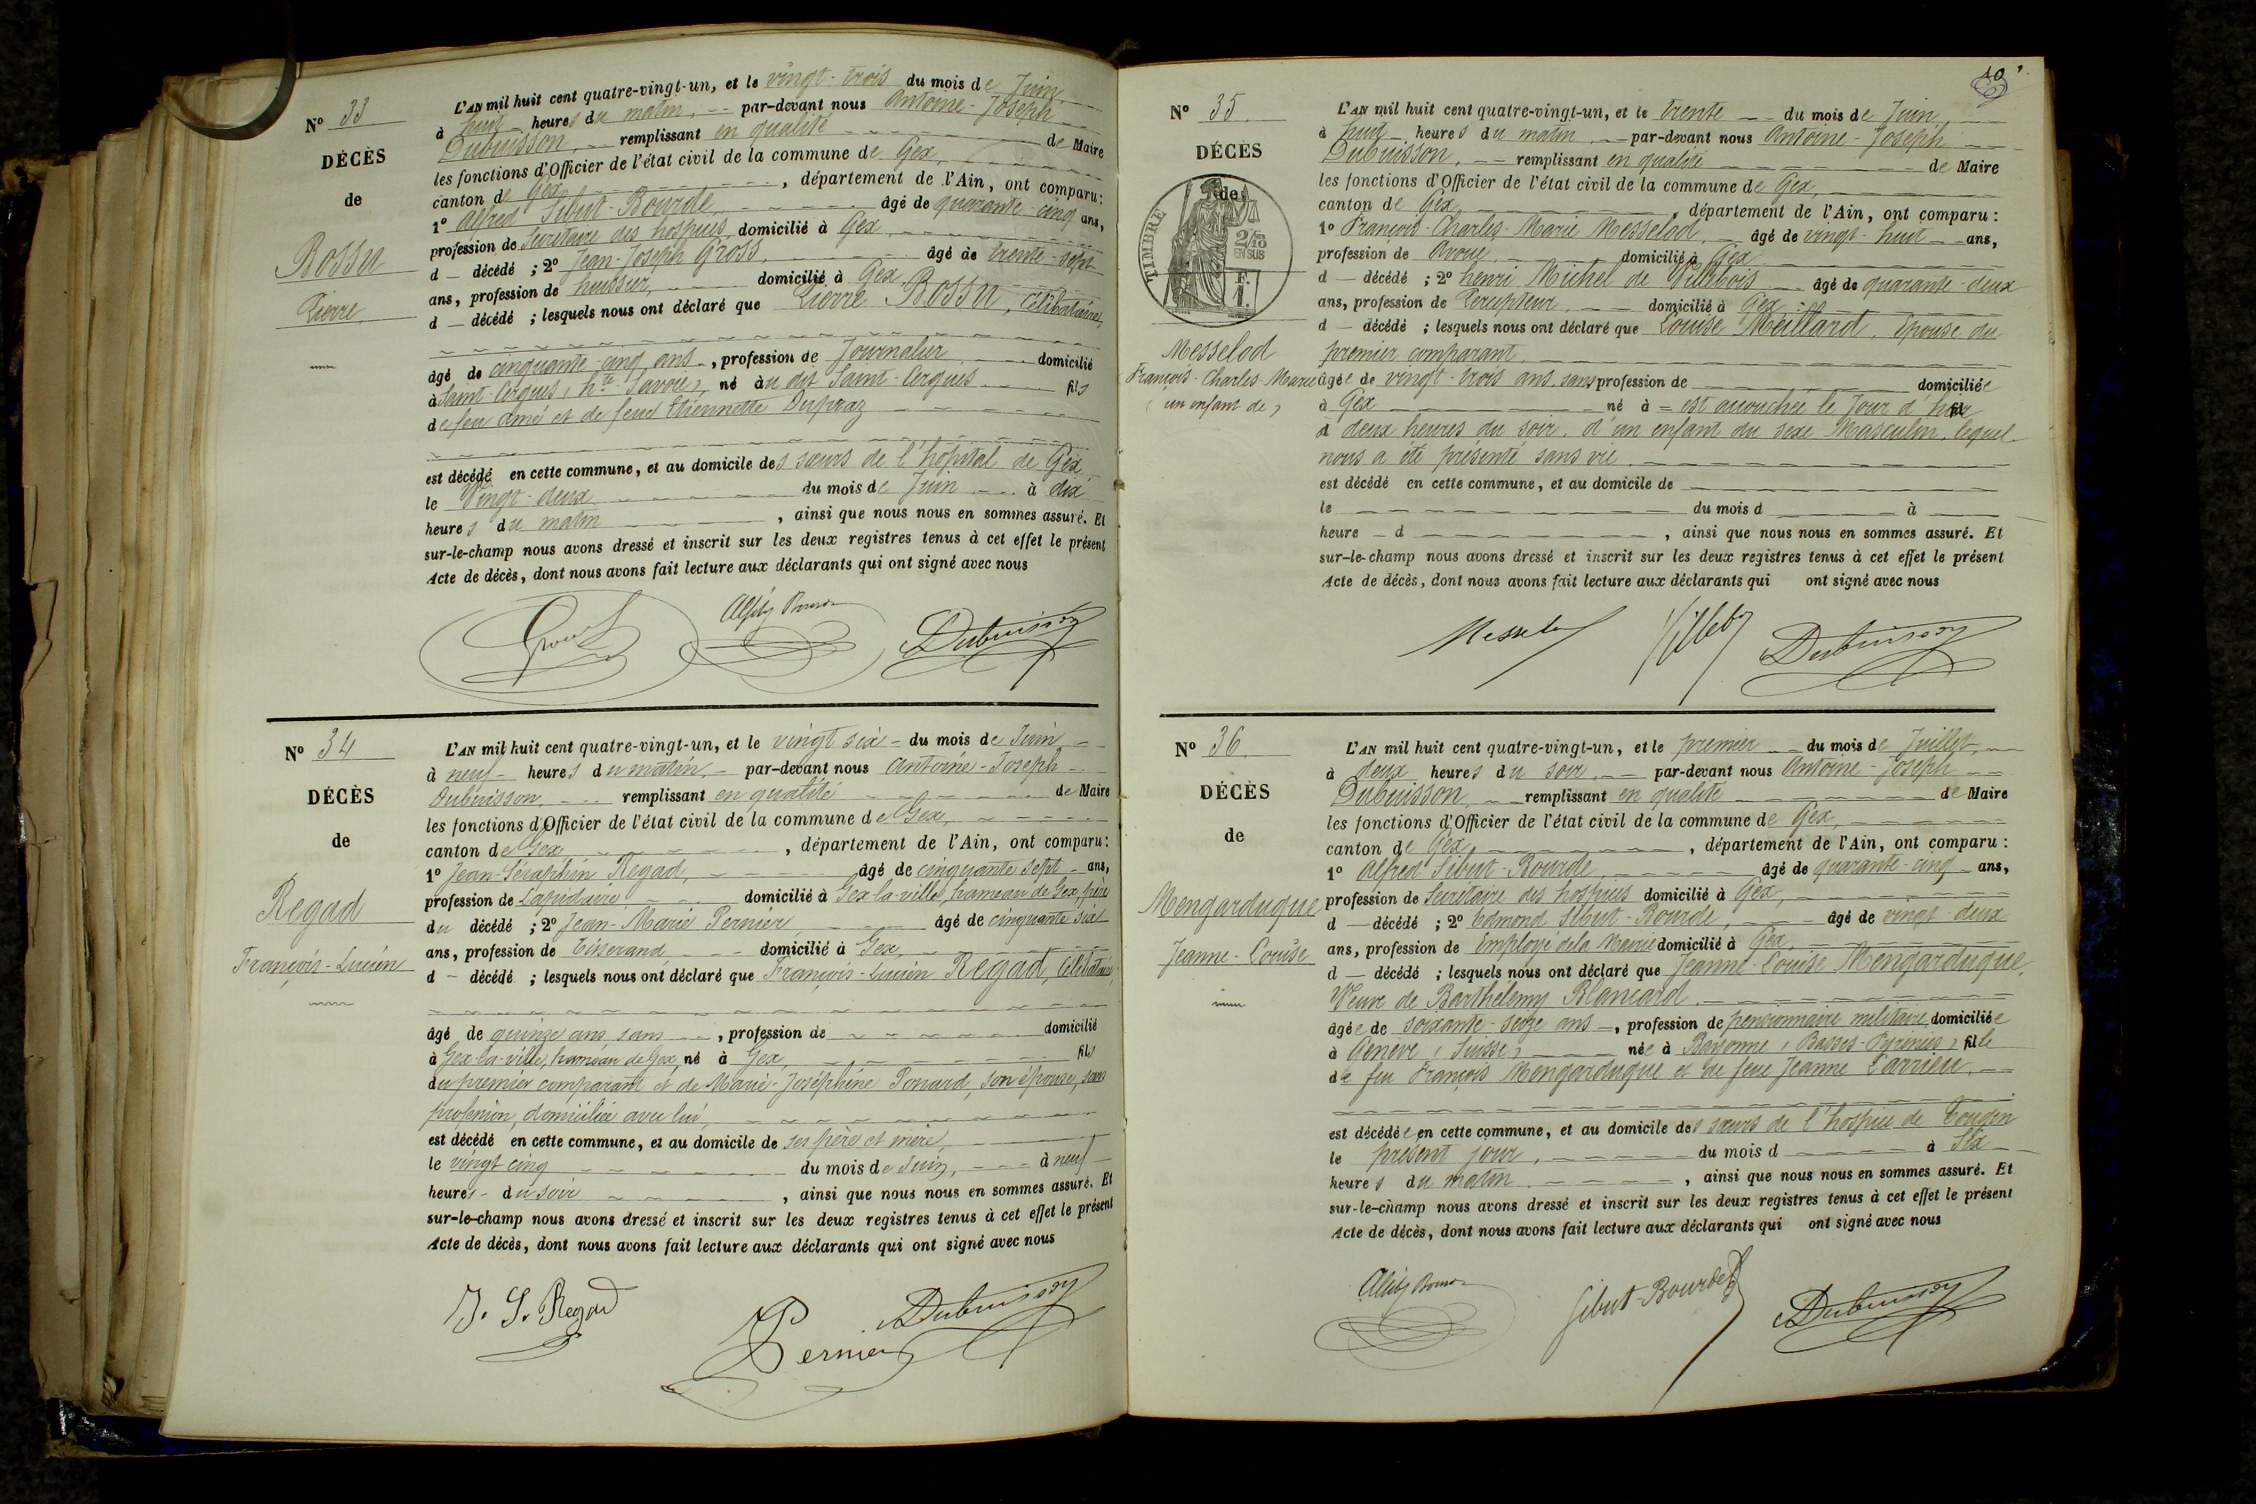 Nº 33
DÉCÈS
de
Bossu
Pierre
L'AN mil huit cent quatre-vingt-un, et le vingt-trois du mois de Juin
à huit heures du matin, par-devant nous Antoine-Joseph
Dubuisson, remplissant en qualité de Maire
les fonctions d'Officier de l'état civil de la commune de Gex,
canton de Gex, département de l'Ain, ont comparu :
1º Alfred Sibut-Bourde, âgé de quarante-cinq ans,
profession de Secrétaire des hospices, domicilié à Gex,
d décédé ; 2º Jean-Joseph Gross, âgé de trente-sept
ans, profession de huissier, domicilié à Gex
d décédé ; lesquels nous ont déclaré que Pierre Bossu, célibataire,
âgé de cinquante-cinq ans, profession de Journalier domicilié
à Saint-Cergues (hte Savoie), né au dit Saint-Cergues fils
de feu Amé et de feue Etiennette Dupraz
est décédé en cette commune, et au domicile des sœurs de l'hôpital de Gex
le Vingt-deux du mois de Juin à dix
heures du matin, ainsi que nous nous en sommes assuré. Et
sur-le-champ nous avons dressé et inscrit sur les deux registres tenus à cet effet le présent
Acte de décès, dont nous avons fait lecture aux déclarants qui ont signé avec nous
Dubuisson
Nº 34
DÉCÈS
de
Regad
François-Lucien
L'AN mil huit cent quatre-vingt-un, et le vingt six du mois de Juin
à neuf heures du matin, par-devant nous Antoine-Joseph
Dubuisson, remplissant en qualité de Maire
les fonctions d'Officier de l'état civil de la commune de Gex,
canton de Gex, département de l'Ain, ont comparu :
1º Jean-Séraphin Regad, âgé de cinquante sept ans,
profession de Lapidaire domicilié à Gex-la-ville, hameau de Gex, père
du décédé ; 2º Jean-Marie Pernier, âgé de cinquante six
ans, profession de Tisserand, domicilié à Gex,
d décédé ; lesquels nous ont déclaré que François-Lucien Regad, Célibataire,
âgé de quinze ans, sans, profession de domicilié
à Gex-la-ville, hameau de Gex, né à Gex, fils
du premier comparant et de Marie-Joséphine Ponard, son épouse, sans
profession, domiciliée avec lui,
est décédé en cette commune, et au domicile de ses père et mère,
le vingt cinq du mois de Juin, à neuf
heures du soir, ainsi que nous nous en sommes assuré. Et
sur-le-champ nous avons dressé et inscrit sur les deux registres tenus à cet effet le présent
Acte de décès, dont nous avons fait lecture aux déclarants qui ont signé avec nous
J. S. Regad
Pernier
Dubuisson
10
Nº 35
DÉCÈS
de
TIMBRE
2/10
EN SUS
1 F.
Messelod
François-Charles-Marie
(un enfant de)
L'AN mil huit cent quatre-vingt-un, et le trente du mois de Juin
à huit heures du matin par-devant nous Antoine-Joseph
Dubuisson, remplissant en qualité de Maire
les fonctions d'Officier de l'état civil de la commune de Gex,
canton de Gex, département de l'Ain, ont comparu :
1º François-Charles-Marie Messelod, âgé de vingt-huit ans,
profession de Avoué domicilié à Gex
d décédé ; 2º henri Michel de Villebois âgé de quarante-deux
ans, profession de Percepteur, domicilié à Gex
d décédé ; lesquels nous ont déclaré que Louise Meillard, Epouse du
premier comparant,
âgée de vingt-trois ans, sans profession de domiciliée
à Gex né à est accouchée le Jour d'hier
à deux heures du soir, d'un enfant du sexe Masculin, lequel
nous a été présenté sans vie.
est décédé en cette commune, et au domicile de
le du mois d à
heure d, ainsi que nous nous en sommes assuré. Et
sur-le-champ nous avons dressé et inscrit sur les deux registres tenus à cet effet le présent
Acte de décès, dont nous avons fait lecture aux déclarants qui ont signé avec nous
Dubuisson
Nº 36
DÉCÈS
de
Mengarduque
Jeanne-Louise
L'AN mil huit cent quatre-vingt-un, et le premier du mois de Juillet,
à deux heures du soir, par-devant nous Antoine-Joseph
Dubuisson, remplissant en qualité de Maire
les fonctions d'Officier de l'état civil de la commune de Gex,
canton de Gex, département de l'Ain, ont comparu :
1º Alfred Sibut-Bourde, âgé de quarante-cinq ans,
profession de Secrétaire des hospices domicilié à Gex,
d décédé ; 2º Edmond Sibut-Bourde, âgé de vingt-deux
ans, profession de Employé de la Mairie domicilié à Gex,
d décédé ; lesquels nous ont déclaré que Jeanne-Louise Mengarduque,
Veuve de Barthélemy Blancard
âgée de soixante-seize ans, profession de pensionnaire militaire domiciliée
à Genève (Suisse), née à Bayonne (Basses-Pyrénées) fille
de feu François Mengarduque et de feue Jeanne Larrieu,
est décédée en cette commune, et au domicile des sœurs de l'hospice de Tougin
le présent jour, du mois d à Six
heures du matin, ainsi que nous nous en sommes assuré. Et
sur-le-champ nous avons dressé et inscrit sur les deux registres tenus à cet effet le présent
Acte de décès, dont nous avons fait lecture aux déclarants qui ont signé avec nous
Sibut-Bourde
Dubuisson